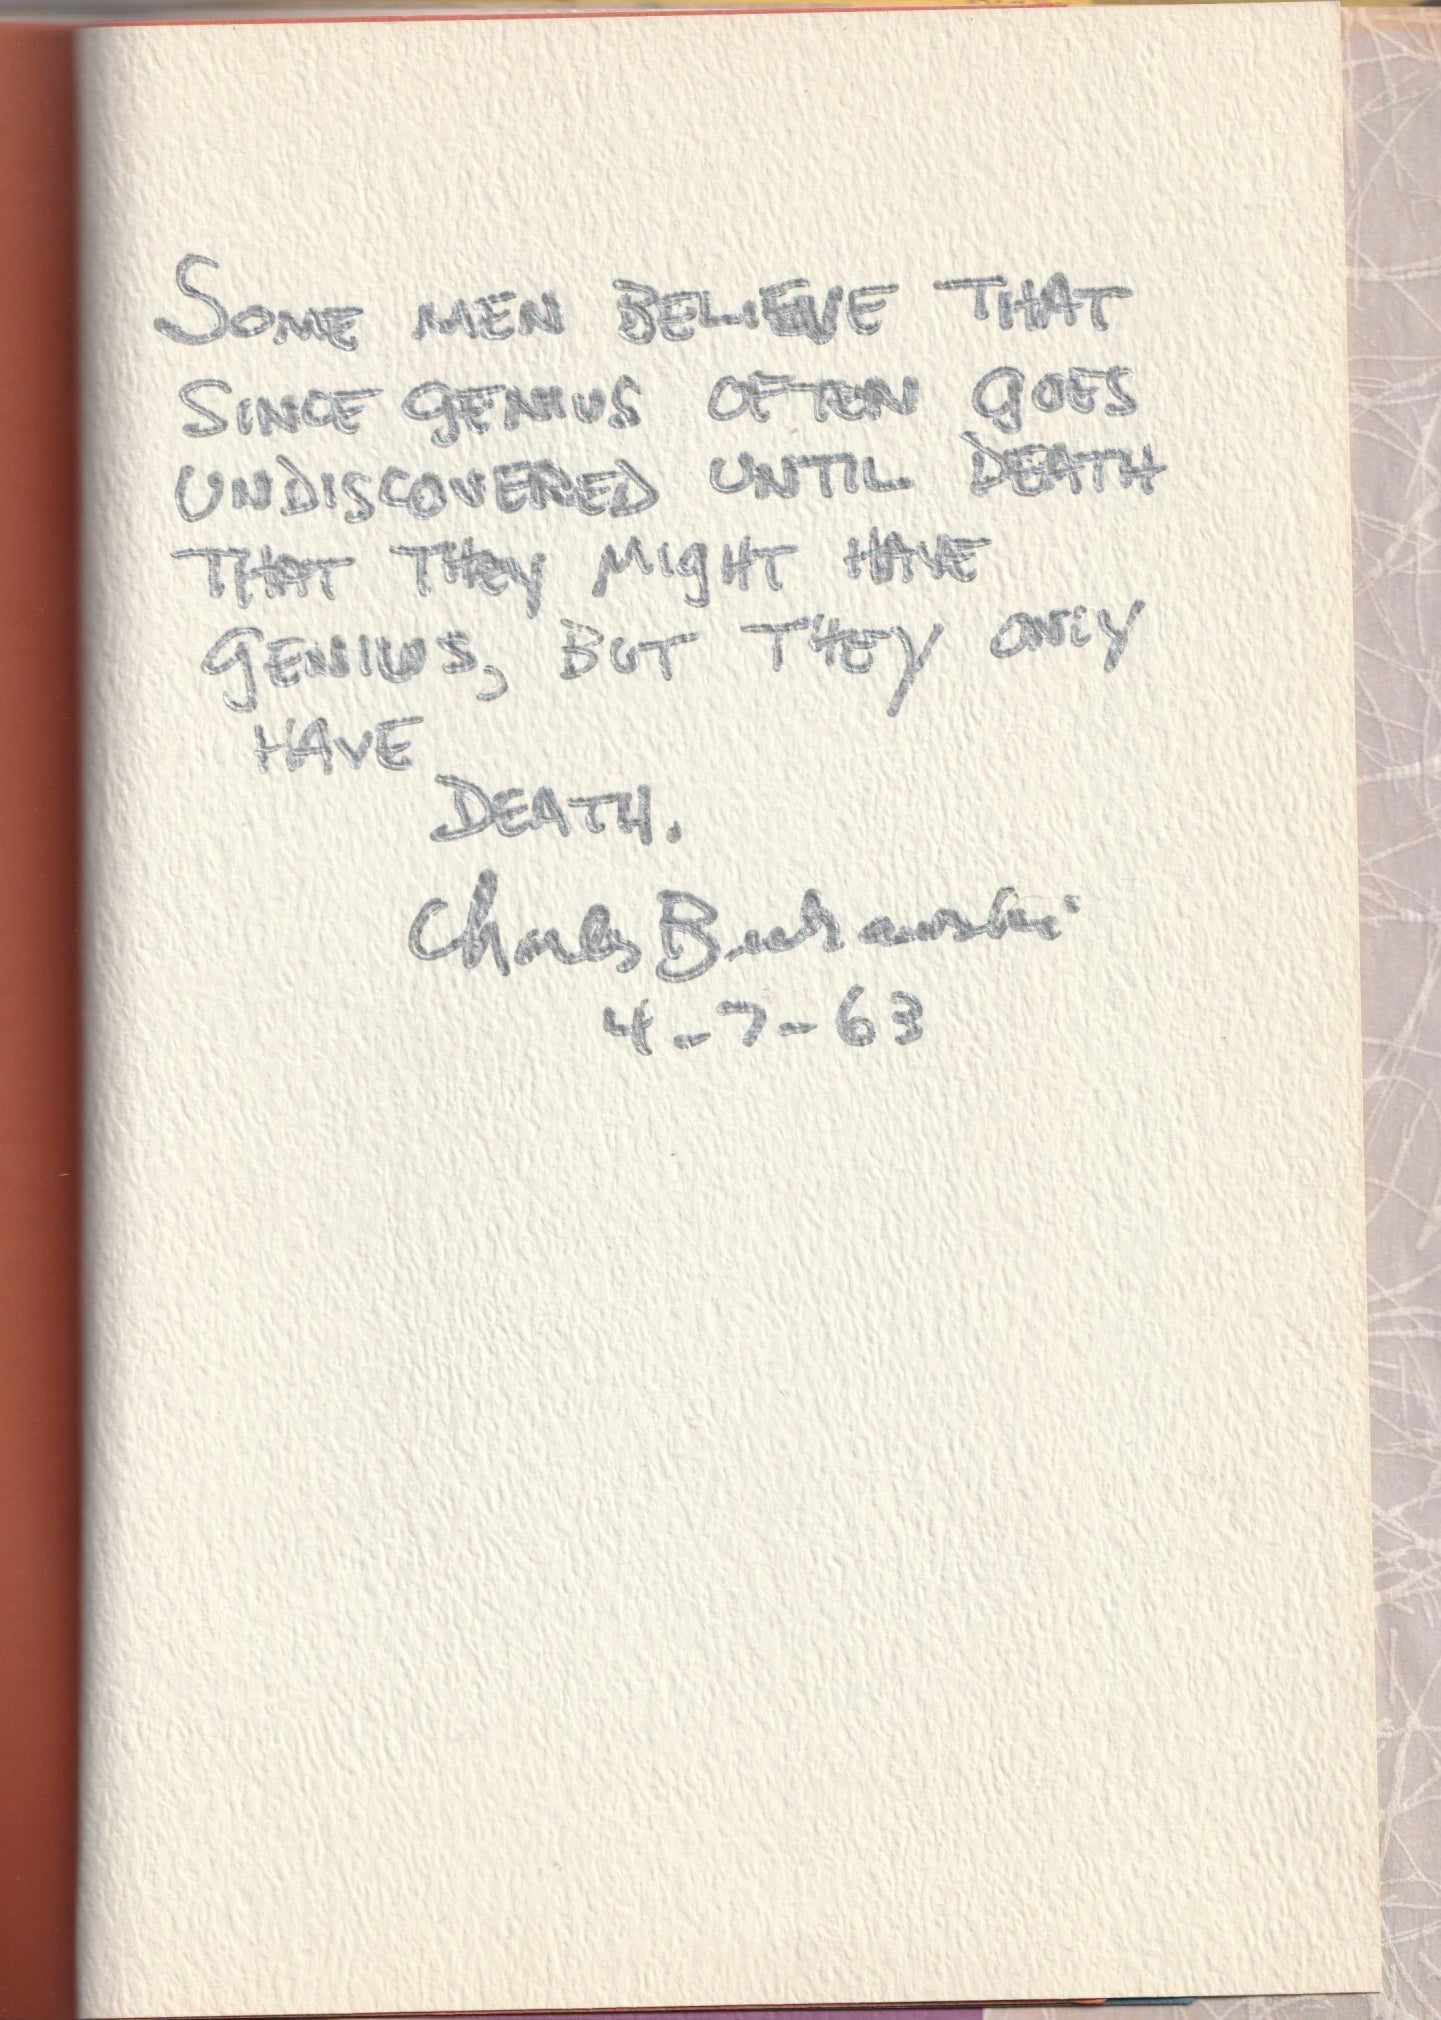 SOME MEN BELIEVE THAT
SINCE GENIUS OFTEN GOES
UNDISCOVERED UNTIL DEATH
THAT THEY MIGHT HAVE
GENIUS, BUT THEY ONLY
HAVE
DEATH.
Charles Bukowski
4-7-63